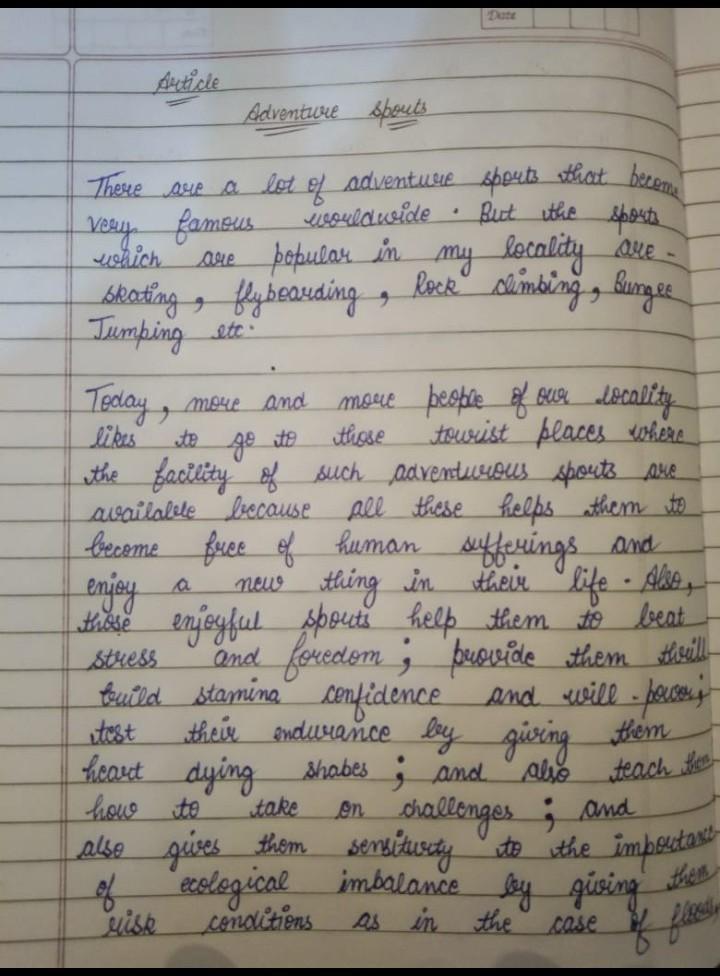 Date
Article
Adventure sports
There are a lot of adventure sports that become
very famous worldwide. But the sports
which are popular in my locality are -
skating, flyboarding, Rock climbing, Bungee
Jumping etc.
Today, more and more people of our locality
likes to go to those tourist places where
the facility of such adventurous sports are
available because all these helps them to
become free of human sufferings and
enjoy a new thing in their life. Also,
those enjoyful sports help them to beat
stress and foredom; provide them thrill
build stamina confidence and will-power;
test their endurance by giving them
heart dying shabes; and also teach them
how to take on challenges; and
also gives them sensiturity to the importance
of ecological imbalance by giving them
risk conditions as in the case of floods,